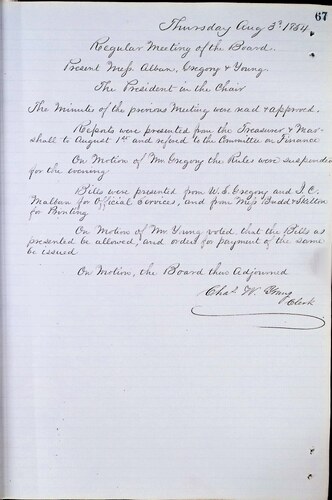 67
Thursday Aug 3d 1864
Regular Meeting of the Board.
Present Mess Alban, Gregory & Young.
The President in the Chair
The Minutes of the previous Meeting were read & approved.
Reports were presented from the Treasurer & Mar-
shall to August 1st and referred to the Committee on Finance
On Motion of Mr Gregory the Rules were suspended
for the evening
Bills were presented from W. S. Gregory and I. C.
for Official Services, and from Mess Budd & Skelton
for Printing
On Motion of Mr Young voted that the Bills as
presented be allowed, and orders for payment of the same
be issued
On Motion, the Board then Adjourned
Chas W. Young
Clerk